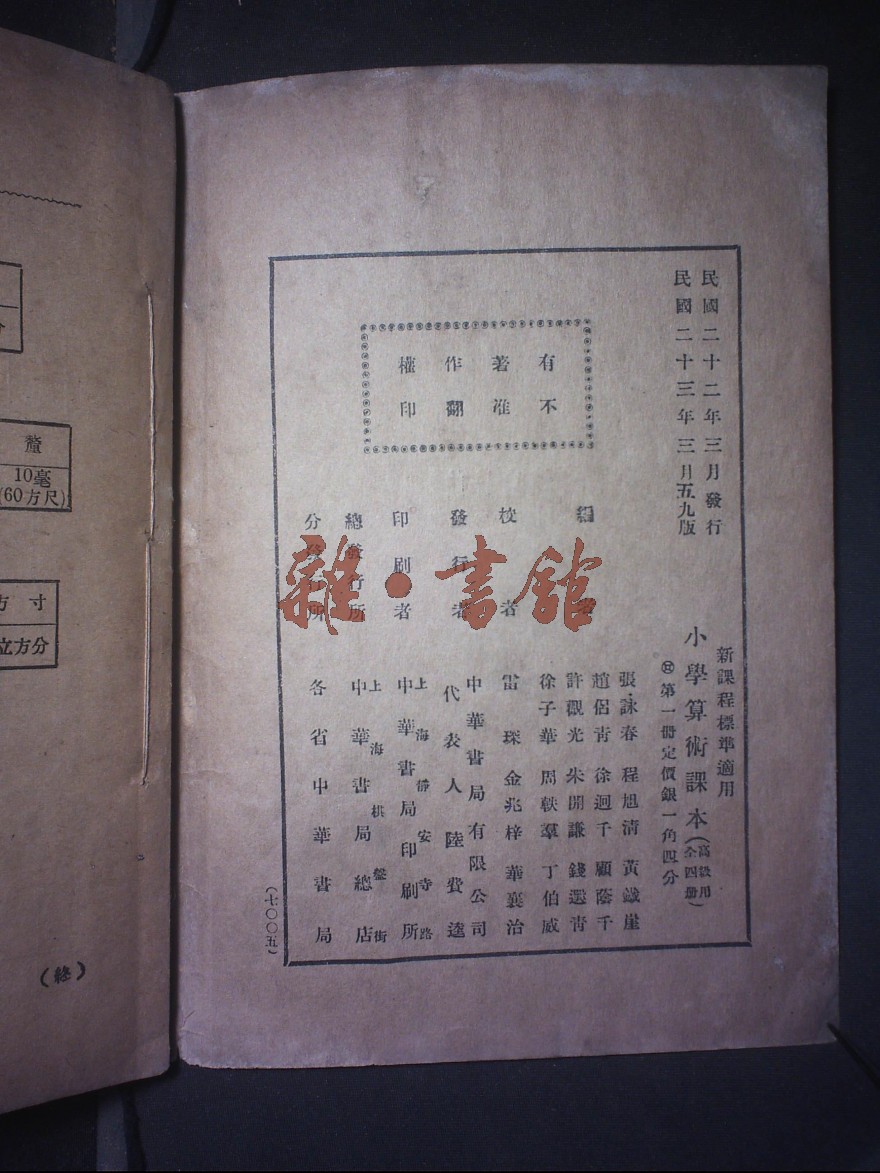 民國二十二年三月發行
民國二十三年三月五九版
新課程標準適用
小學算術課本(高級用全四册)
第一册定價銀一角四分
有著作權
不准翻印
編者
張詠春 程旭清 黃鐵崖
趙侶青 徐迥千 顧蔭千
許觀光 朱開謙 錢選青
徐子華 周軼羣 丁伯威
校者
雷琛 金兆梓 華襄治
發行者
中華書局有限公司
代表人 陸費逵
印刷者
上海靜安寺路
中華書局印刷所
總發行所
上海棋盤街
中華書局總店
分發行所
各省中華書局
(七〇〇五)
雜·書館
釐
10毫
(60方尺)
方寸
立方分
分
(終)